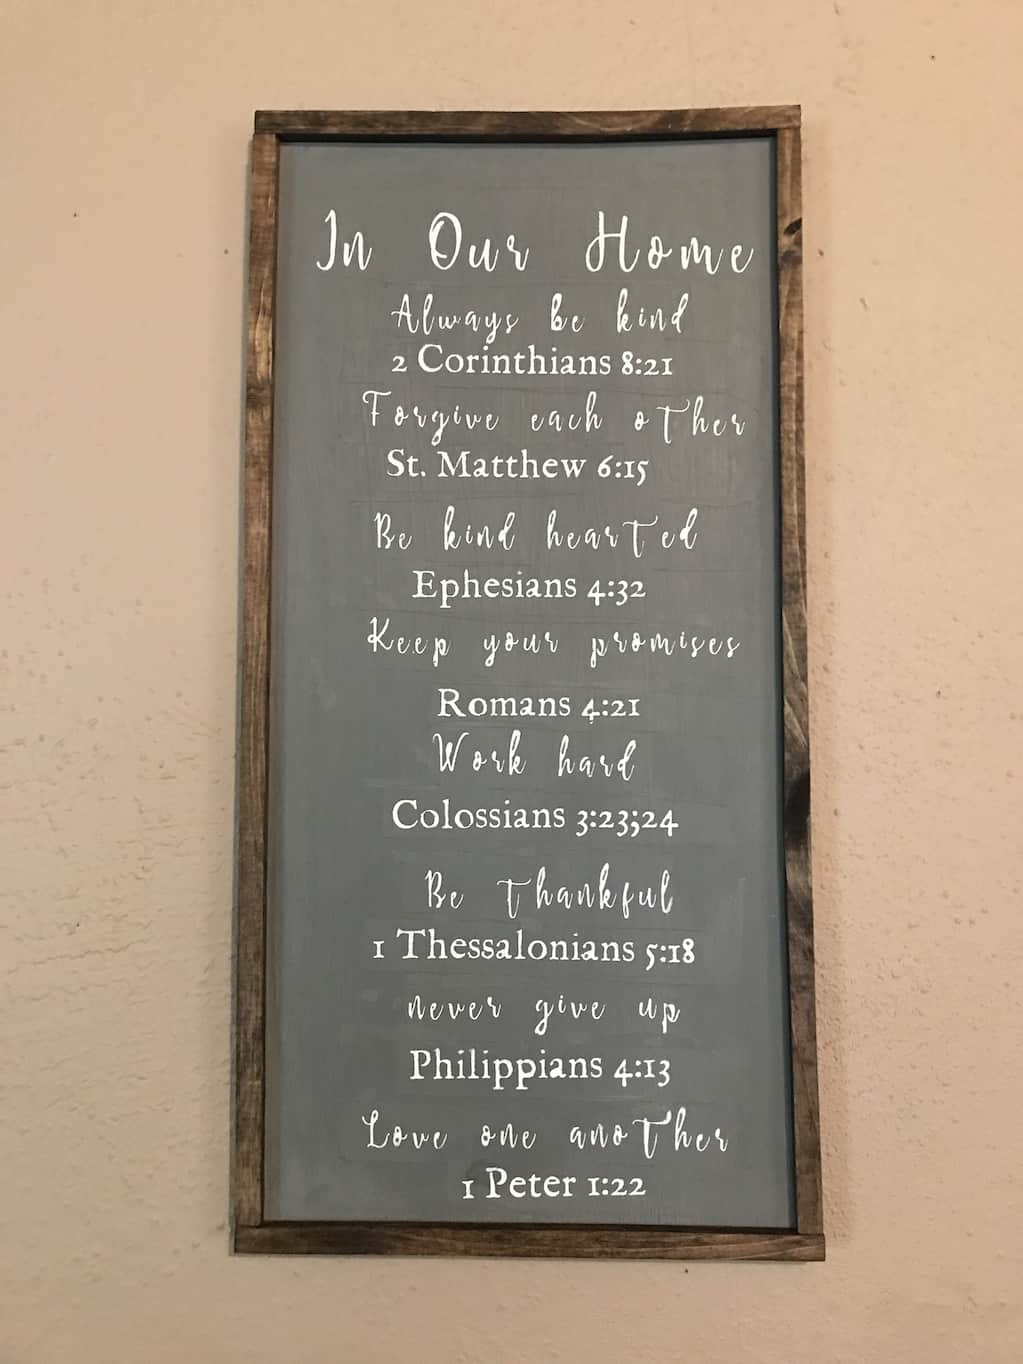 In Our Home
Always be kind
2 Corinthians 8:21
Forgive each other
St. Matthew 6:15
Be kind hearted
Ephesians 4:32
Keep your promises
Romans 4:21
Work hard
Colossians 3:23;24
Be thankful
1 Thessalonians 5:18
never give up
Philippians 4:13
Love one another
1 Peter 1:22